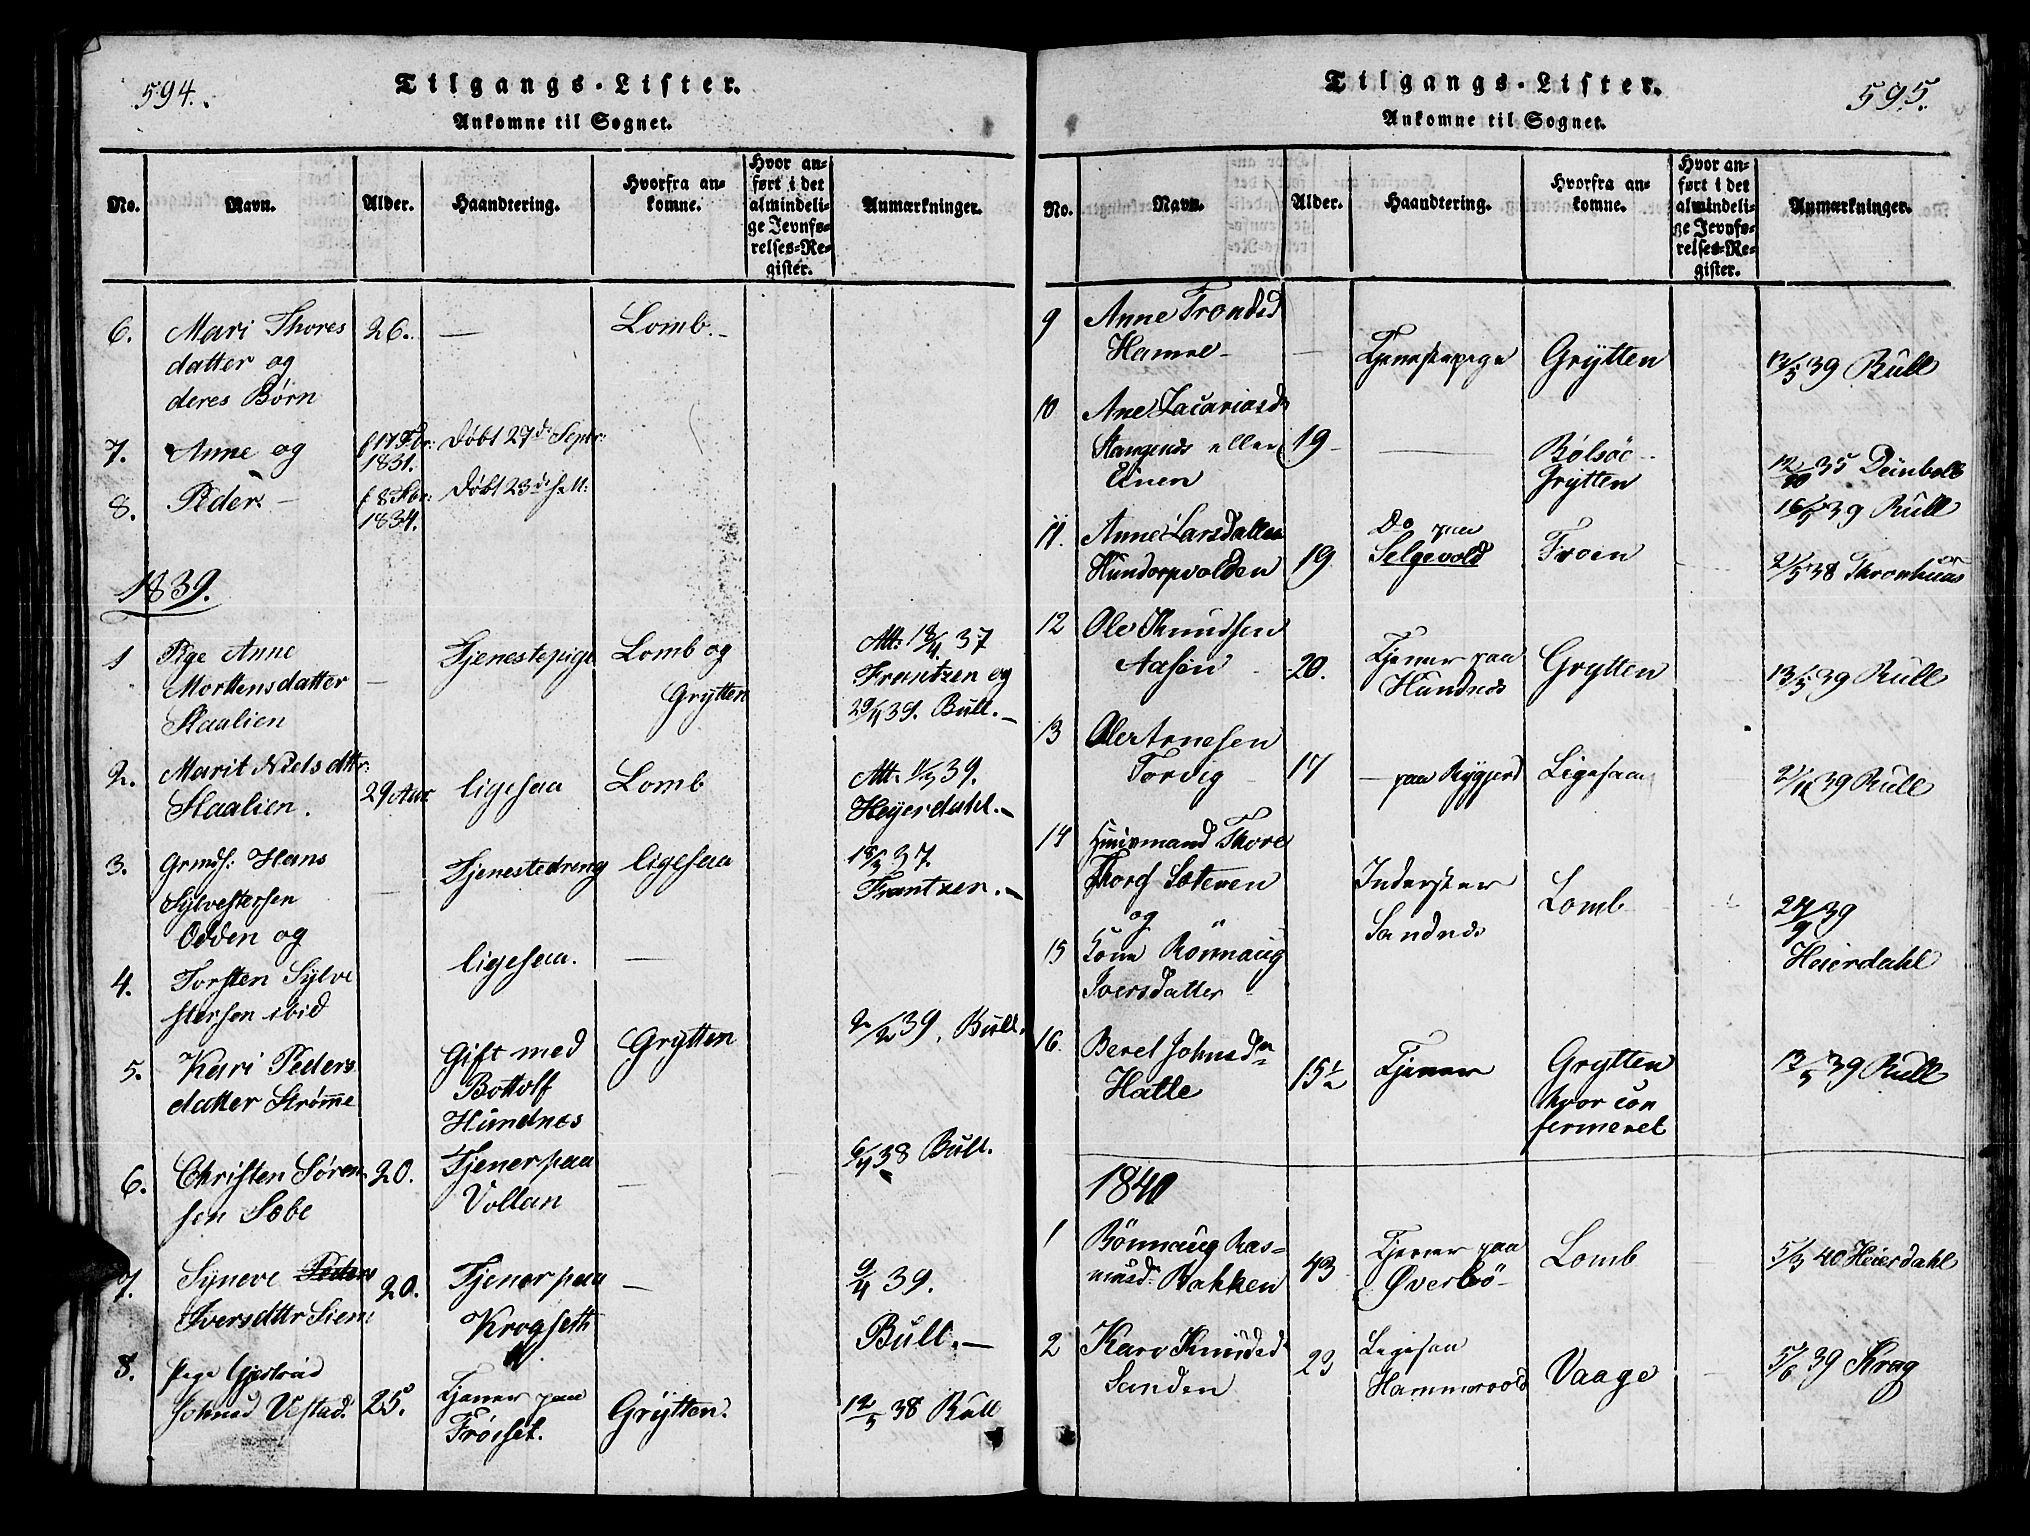 594.
Tilgangs-Lister.
Ankomne til Sognet.
No. Navn. Alder. Haandtering. Hvorfra ankomne. Hvor anført i det almindelige Jevnførelses-Register. Anmærkninger.
6. Mari Thores 26. — Lomb. —
datter og
deres Børn
7. Anne og f 17 Febr: 1831. Døbt 27de Septr:
8. Peder. — f 8 1834. Døbt 23de
1839.
1 Pige Anne — Tjenestepige Lomb og Att: 18/4 37
Mortensdatter Grytten Frantzen og
Staalien 29/4 39. Bull. —
2. Marit Nielsdttr: 29 Aar ligesaa Lomb Att. 39.
Staalien. Heyerdahl. —
3. Grmds: Hans — Tjenestedreng ligesaa 18/3 37.
Sylvestersen Frantzen. —
Odden og
4. Torsten Sylve ligesaa. —
stersen ibid
5. Kari Peders Gift med Grytten 2/2 39. Bull.
datter Strømme Bottolf
Hundnes
6. Christen Søren 20. Tjener paa — 6/4 38 Bull.
sen Sæbe Vollan
7. Syneve Peders 20. Tjener paa — 9/4 39.
Iversdttr Siem Krogseth Bull. —
8. Pige Gjertrud Tjener paa
Johnsd Vestad. 25. Frøiset. Grytten. 12/5 38 Bull
595.
Tilgangs-Lister.
Ankomne til Sognet.
No. Navn. Alder. Haandtering. Hvorfra ankomne. Hvor anført i det almindelige Jevnførelses-Register. Anmærkninger.
9 Anne Trondsd
Hamre — — Tjenestepige Grytten 13/5 39 Bull
10 Ane Zacariasd
Stangenes eller 19 — — Bølsöe — 12/10 35 Deinboll
Einen Grytten 16/9 39 Bull
11. Anne Larsdatter Do paa
Hundorpvolden 19 Selgevold Froen 2/5 38
12 Ole Knudsen Tjener paa
Aasen 20. Hundnes Grytten 13/5 39 Bull
13 Ole Arnesen
Torvig 17 — paa Rygjerd Ligesaa 39 Bull
14 Huusmand Thore
Thores Sæteren Inderster Lomb 24/9 39
og Sandnes Heierdahl
15 Kone Rönnaug
Iversdatter
16. Beret Johnsdr Grytten 13/5 39 Bull
Hatle 15½ Tjener hvor con
fermeret
1840
1 Rönnaug Ras- Tjener paa Lomb 5/3 40 Heierdahl
musd. Bakken 43 Øverbö —
2 Kari Knudsd Ligesaa
Sanden 23 Hammervold Vaage 5/6 39 Krag